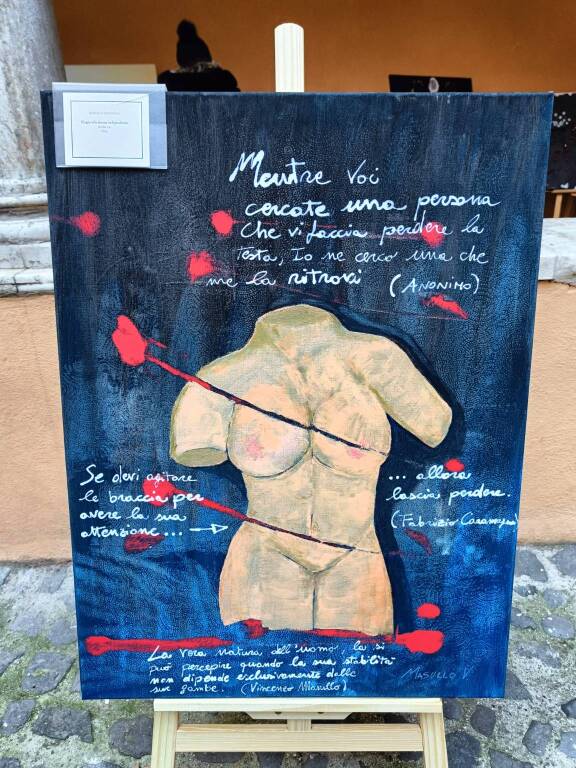 Mentre voi
cercate una persona
che vi faccia perdere la
testa, Io ne cerco una che
me la ritrovi (ANONIMO)
Se devi agitare
le braccia per
avere la sua
attenzione...
... allora
lascia perdere.
(Fabrizio Caramagna)
La vera natura dell'uomo, la si
può percepire quando la sua stabilità
non dipende esclusivamente dalle
sue gambe. (Vincenzo Masullo)
MASULLO V